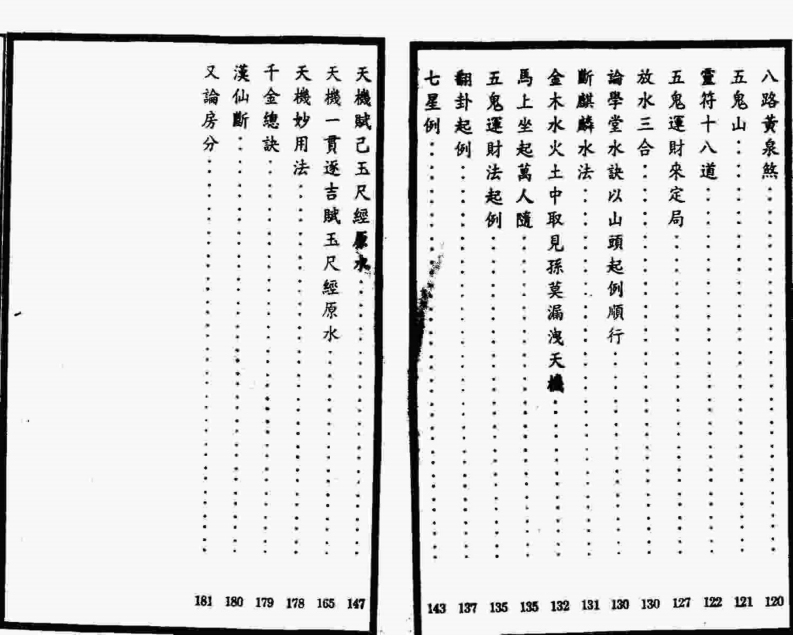 八路黃泉煞 120
五鬼山 121
靈符十八道 122
五鬼運財來定局 127
放水三合 130
論學堂水訣以山頭起例順行 130
斷麒麟水法 131
金木水火土中取見孫莫漏洩天機 132
馬上坐起萬人隨 135
五鬼運財法起例 135
翻卦起例 137
七星例 143
天機賦己玉尺經原水 147
天機一貫逐吉賦玉尺經原水 165
天機妙用法 178
千金總訣 179
漢仙斷 180
又論房分 181